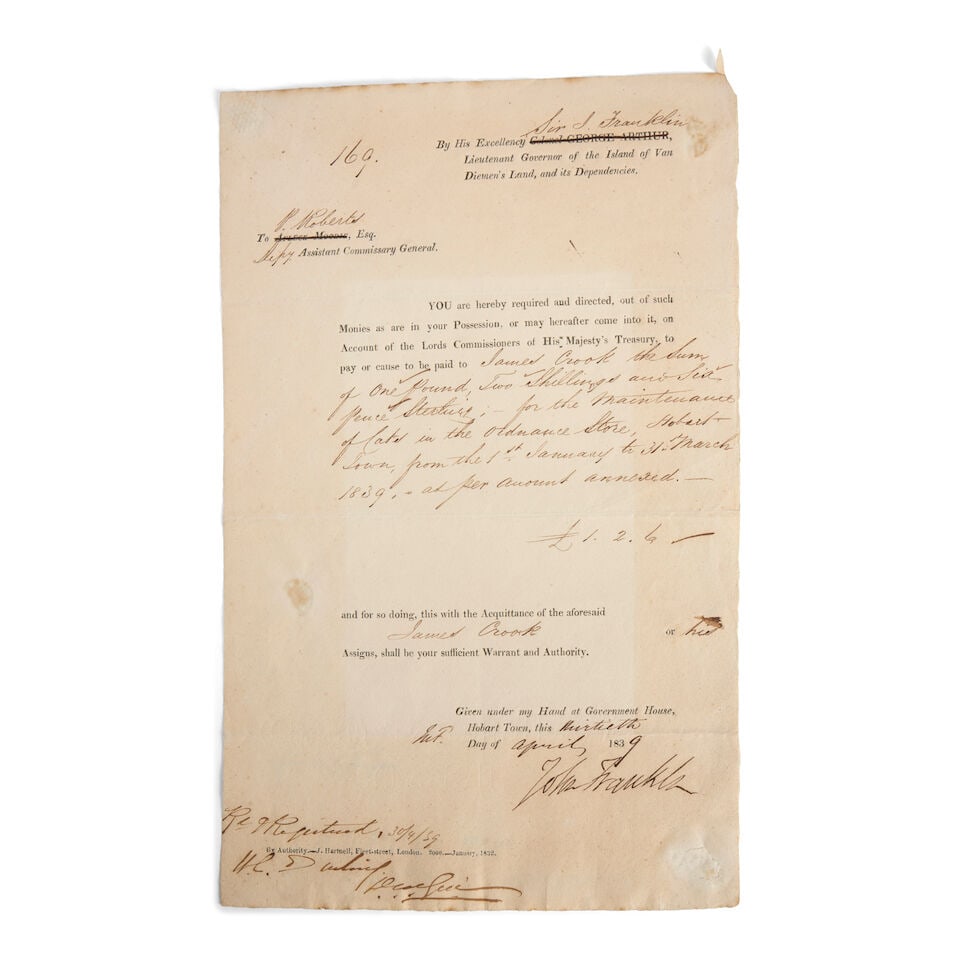 Sir J. Franklin
169.
By His Excellency Colonel GEORGE ARTHUR,
Lieutenant Governor of the Island of Van
Diemen's Land, and its Dependencies.
P. Roberts
To Moodie, Esq.
Depy. Assistant Commissary General.
YOU are hereby required and directed, out of such
Monies as are in your Possession, or may hereafter come into it, on
Account of the Lords Commissioners of His Majesty's Treasury, to
pay or cause to be paid to James Crook the Sum
of One Pound, Two Shillings and Six
pence Sterling; – for the Maintenance
of Cats in the Ordnance Store, Hobart
Town, from the 1st January to 31st March
1839, – as per amount annexed. —
£ 1. 2. 6 —
and for so doing, this with the Acquittance of the aforesaid
James Crook or his
Assigns, shall be your sufficient Warrant and Authority.
Given under my Hand at Government House,
Hobart Town, this thirtieth
Day of April 1839
John Franklin
Registered, 30/4/39
By Authority.—J. Hartnell, Fleet-street, London. 7000.—January, 1832.
W. C.